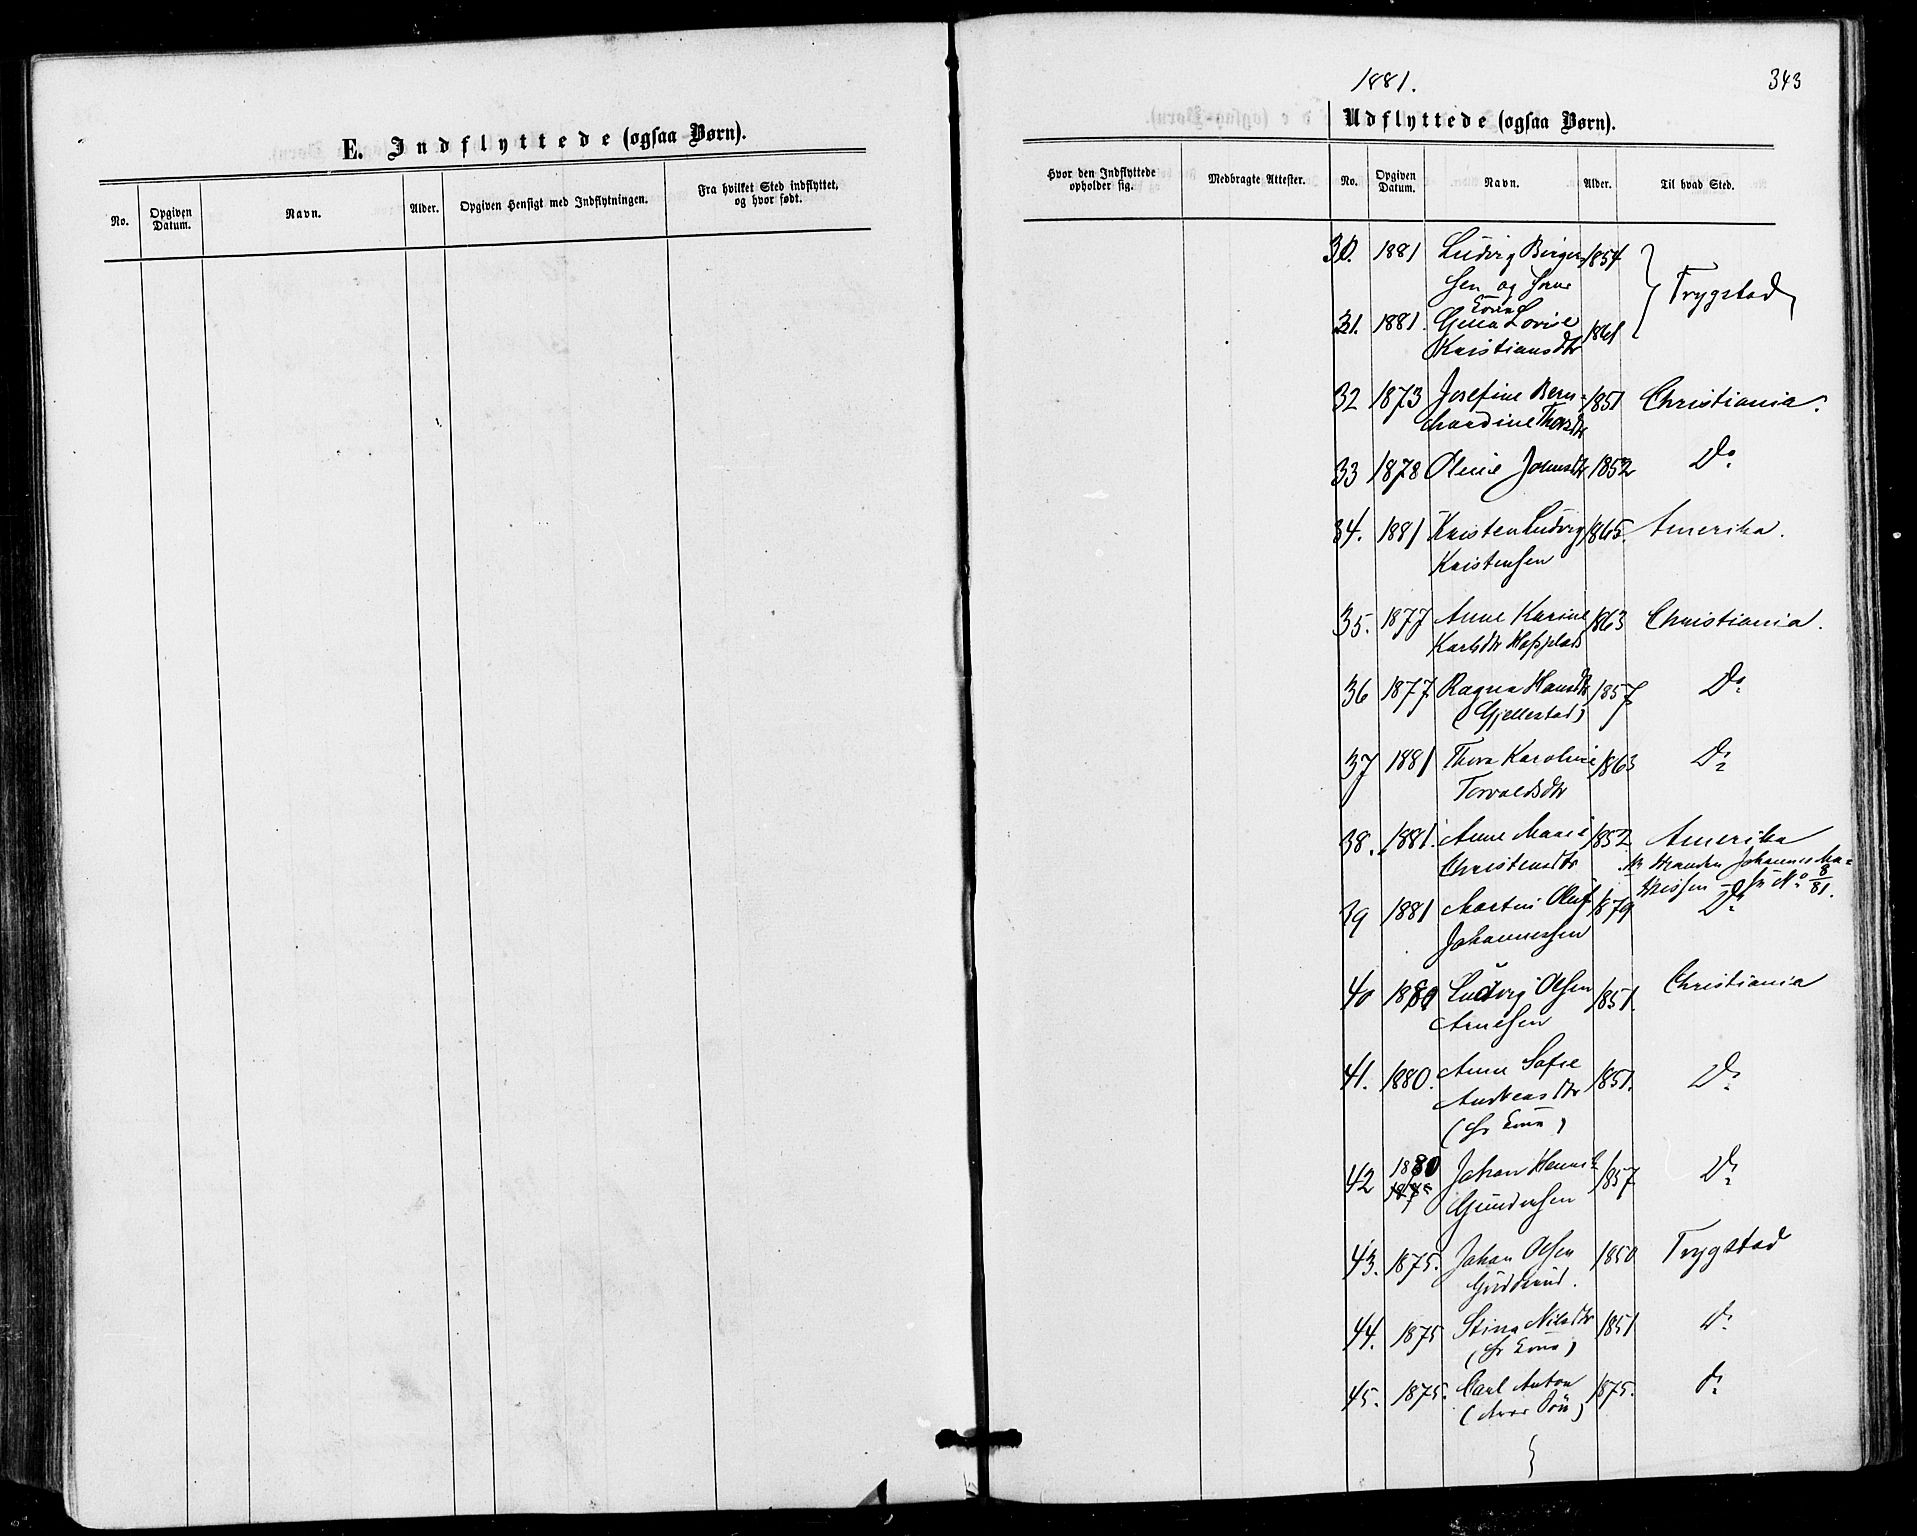 E. Indflyttede (ogsaa Børn).
No. Opgiven Datum. Navn. Alder. Opgiven Hensigt med Indflytningen. Fra hvilket Sted indflyttet, og hvor født.
1881. 343
Udflyttede (ogsaa Børn).
Hvor den Indflyttede opholder sig. Medbragte Attester. No. Opgiven Datum. Navn. Alder. Til hvad Sted.
30. 1881 Ludvig Birger 1854
sen og
Kone
31. 1881. Lovise 1861 Trygstad
Kristiansdtr
32 1873 Josefine Bern- 1851 Christiania.
hardine Thorsdtr
33 1878 Oline Johnsdtr 1852 Do
34. 1881 Kristen Ludvig 1865. Amerika.
Kristensen
35. 1877 Anne Karine 1863 Christiania.
Karlsdtr
36 1877. Ragna Hansdtr 1857 Do
(Gjellestad)
37 1881 Thora Karoline 1863 Do
Torvaldsdtr
38. 1881. Anne Marie 1852. Amerika
Christensdtr Manden Johannes Ma-
thissen No 8/81.
39 1881 Martin Oluf 1879 Do
Johannessen
40 1880 Ludvig Olsen 1851. Christiania
Arnesen
41. 1880. Anne Sofie 1851. Do
Andreasdtr
(hs Kone)
42 1880 Johan Henrik 1857 Do
1875 Gundersen
43. 1875. Johan Olsen 1850 Trygstad
Gudderud.
44. 1875 Stina Nilsdtr 1851 do
(hs Kone)
45. 1875. Carl Anton 1875. do
(deres Søn)